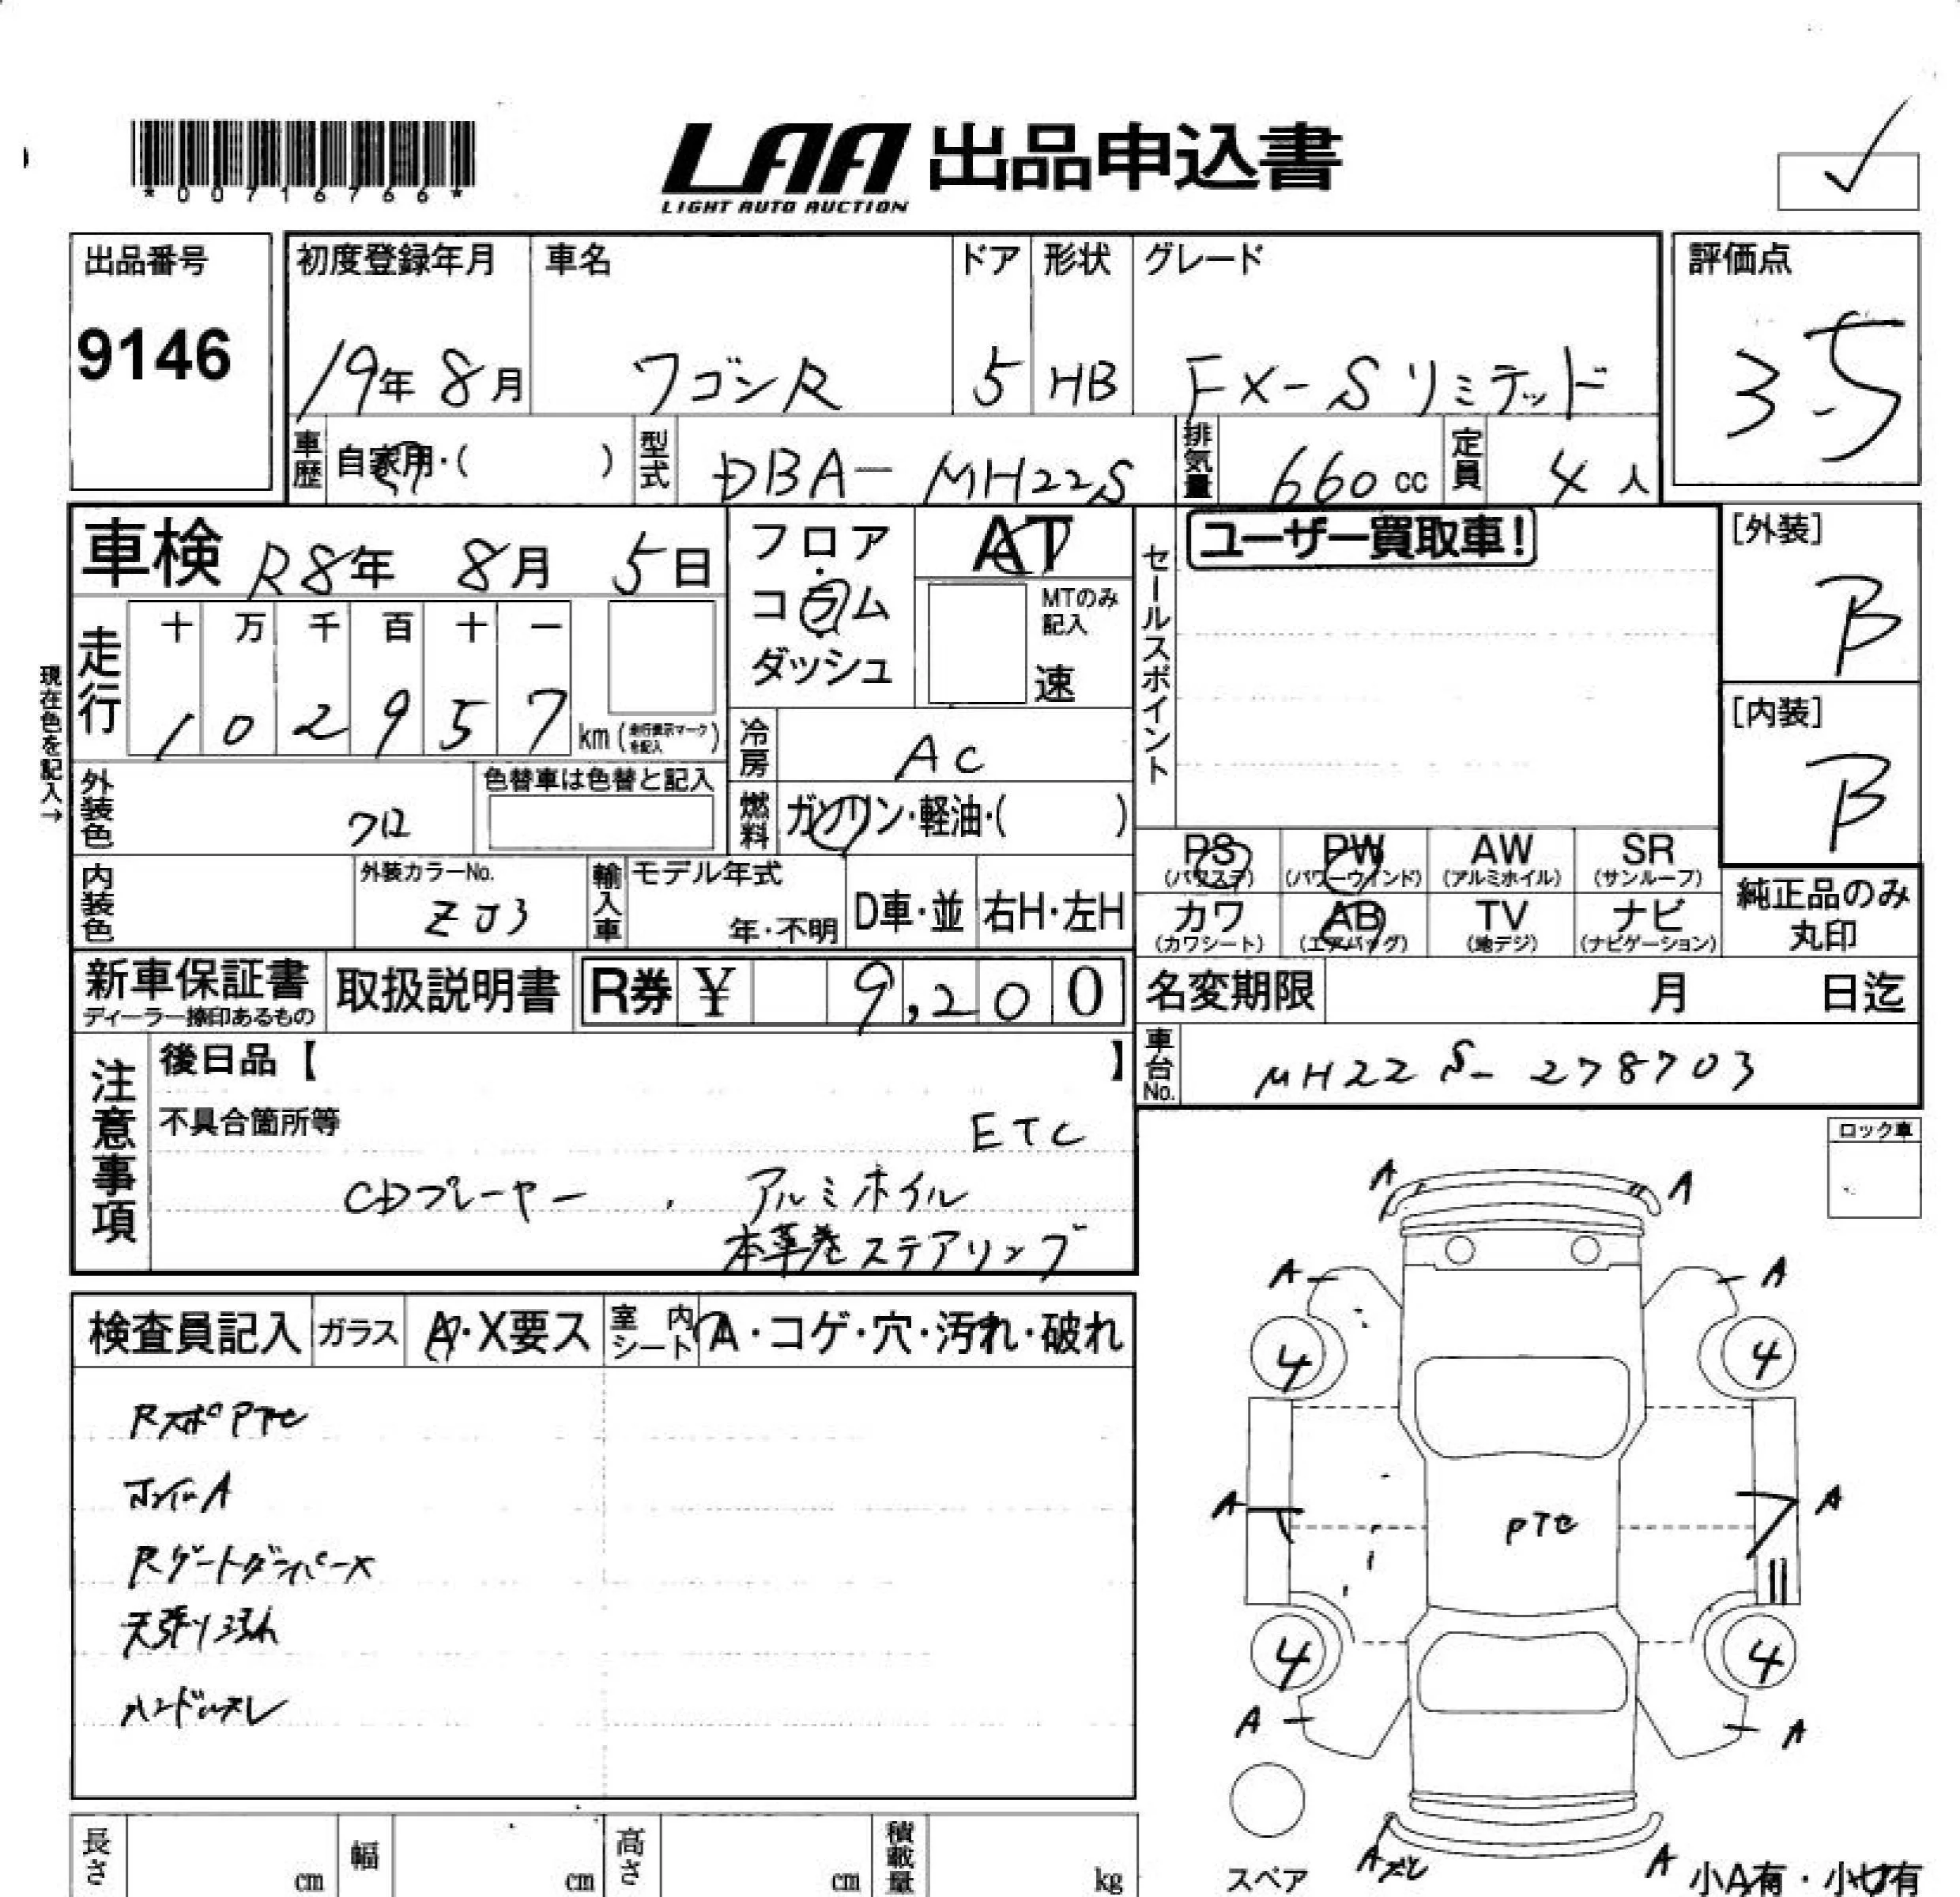 *00716766*
LAA 出品申込書
LIGHT AUTO AUCTION
出品番号
9146
初度登録年月 車名 ドア 形状 グレード
19年 8月 ワゴンR 5 HB FX-Sリミテッド
評価点
3.5
車歴 自家用・( ) 型式 DBA-MH22S 排気量 660cc 定員 4人
車検 R8年 8月 5日
フロア
コラム
ダッシュ
AT
MTのみ記入
速
セールスポイント
ユーザー買取車!
[外装]
B
[内装]
B
現在色を記入→
走行 十 万 千 百 十 一
1 0 2 9 5 7 km(走行表示マークを記入)
冷房 AC
外装色 クロ 色替車は色替と記入
燃料 ガソリン・軽油・( )
内装色 外装カラーNo. ZJ3
輸入車 モデル年式 年・不明 D車・並 右H・左H
PS PW AW SR
(パワステ) (パワーウインド) (アルミホイル) (サンルーフ)
カワ AB TV ナビ
(カワシート) (エアバッグ) (地デジ) (ナビゲーション)
純正品のみ
丸印
新車保証書 取扱説明書 R券 ¥ 9,200
ディーラー捺印あるもの
名変期限 月 日迄
車台No. MH22S-278703
注意事項
後日品【 】
不具合箇所等
ETC
CDプレーヤー , アルミホイル
本革巻ステアリング
ロック車
検査員記入 ガラス A・X要ス 室内シート A・コゲ・穴・汚れ・破れ
RスポPTセ
ホイルA
RゲートダンパーX
天張り汚れ
ハンドルスレ
A A
A A
4 4
A A
PTセ
4 4
A A
スペア
A A
小A有・小凹有
長さ cm 幅 cm 高さ cm 積載量 kg